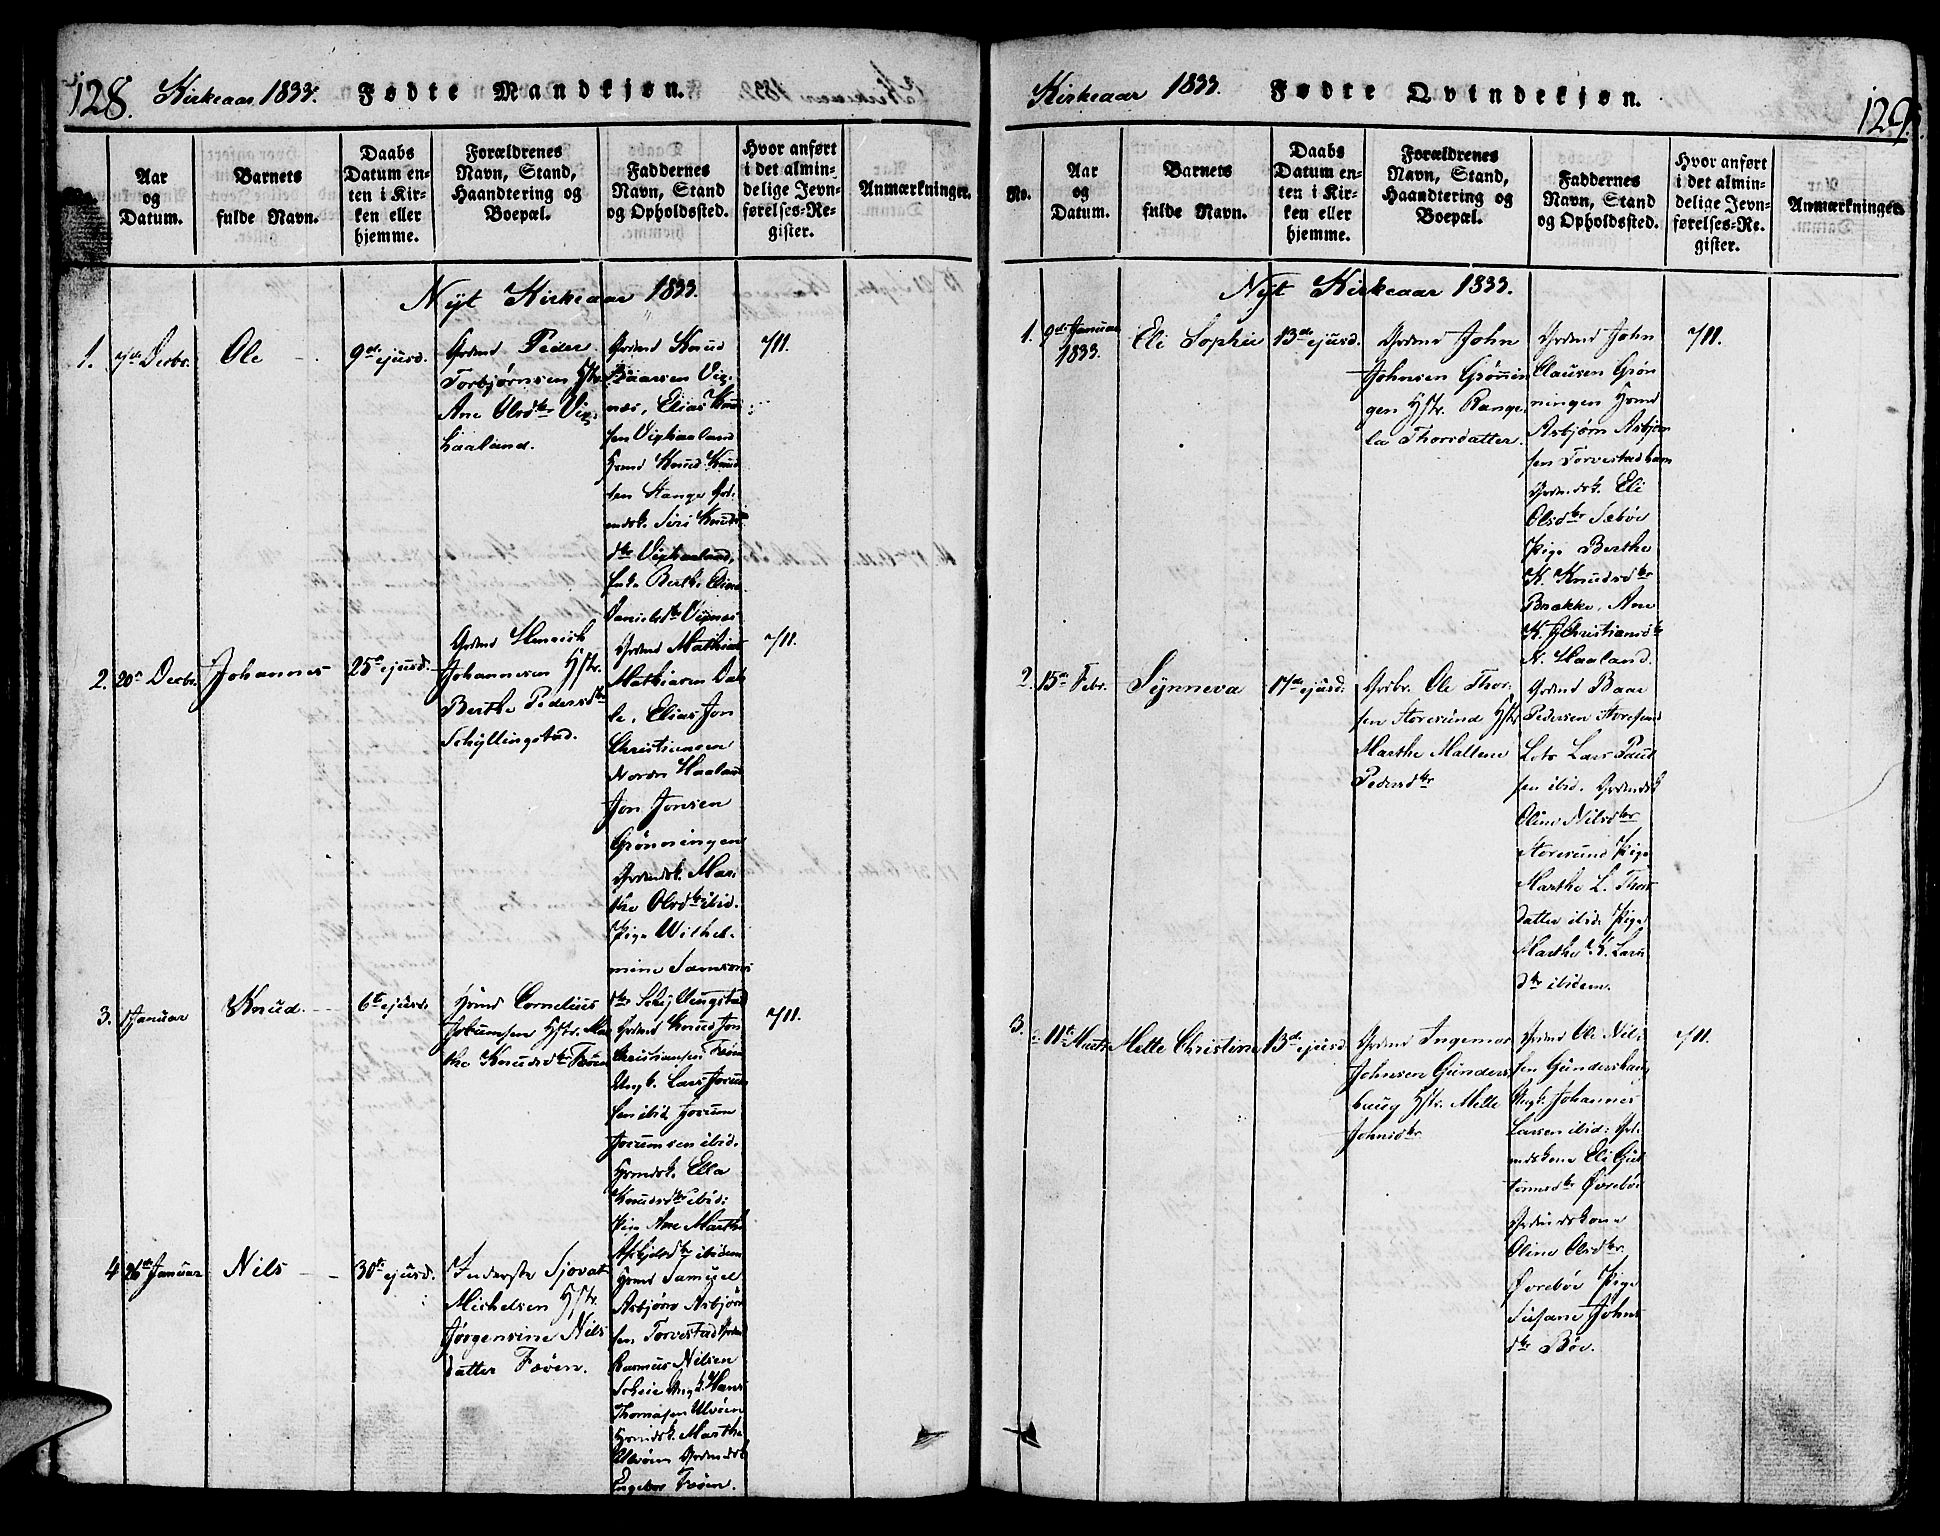 128. Kirkeaar 1833. Fødte Mandkjøn.
Aar
og
Datum.
Barnets
fulde Navn.
Daabs
Datum en-
ten i Kir-
ken eller
hjemme.
Forældrenes
Navn, Stand,
Haandtering og
Boepæl.
Faddernes
Navn, Stand
og Opholdssted.
Hvor anført
i det almin-
delige Jevn-
førelses-Re-
gister.
Anmærkninger.
Nyt Kirkeaar 1833.
1. 7de Decbr. Ole 9de ejusd.
Grdmd Peder
Torbjørnsen Hstr.
Ane Olsdtr Vix-
haaland.
Grdmd Knud
Baarsen Vig-
næs, Elias Knud
sen Vixhaaland
Hsmd Knud Knud
sen Stange Grd-
mdsk. Siri Knuds
dtr Vixhaaland,
Berthe
Danielsdtr Vignæs
711.
2. 20de Decbr. Johannes 25de ejusd.
Grdmd Henrich
Johannesen Hstr.
Berthe Pedersdtr
Schyllingstad.
Grdmd Mathias
Mathiasen Dah
le, Elias Jon
Christiansen
Nordr Haaland
Jon Jonsen
Grönningen
Grdmdsk. Mar
the Olsdtr ibid.
Pige Wilhel-
mine Samsons
dtr Schyllingstad
711.
3. 1 Januar Knud. 6te ejusd.
Hsmd Cornelius
Jorumsen Hstr. Mar
the Knudsdtr Fæöen
Grdmd Knud Jon
Christiansen Fæöen
Ungk. Lars Jorum
sen ibid. Jorum
Jorumsen ibid.
Hsmdsk. Ella
Knudsdtr ibid:
Pige Ane Marthe
ibidem
711.
4 26de Januar Nils 30te ejusd.
Inderste Sjovat
Michelsen Hstr.
Jørgensine Nils
datter Fæöen.
Hsmd Samuel
Asbjörn Asbjörn
sen Torvestad Grdmd
Rasmus Nilsen
Scheie Ungk. Hans
Thomasen Ulvöen
Hsmdsk. Marthe
Ulvöen Grdmdsk
Engebor Fæöen.
Kirkeaar 1833. Fødte Qvindekjøn. 129.
No.
Aar
og
Datum.
Barnets
fulde Navn.
Daabs
Datum en-
ten i Kir-
ken eller
hjemme.
Forældrenes
Navn, Stand,
Haandtering og
Boepæl.
Faddernes
Navn, Stand
og Opholdssted.
Hvor anført
i det almin-
delige Jevn-
førelses-Re-
gister.
Anmærkninger.
Nyt Kirkeaar 1833.
1. 9de Januar
1833.
Eli Sophie 13de ejusd.
Grdmd John
Johnsen Grönnin
gen Hstr. Range
la Thorsdatter.
Grdmd John
Clausen Grön
ningen Hsmd
Asbjørn Asbjørn
sen Torvestad
Grdmdsk. Eli
Olsdtr Sæböe
Pige Berthe
K. Knudsdtr
Brække, Ane
K. JChristiansdtr
N. Haaland.
711.
2. 15de Febr. Synneva 17de ejusd.
Grdbr. Ole Thor-
sen Storesund Hstr
Marthe Mallene
Pedersdtr
Grdmd Baar
Pedersen Storesund
Lots Lars Paul
sen ibid. Grdmdsk
Oline Nilsdtr
Storesund Pige
Marthe L. Thors
datter ibid. Pige
Marthe K. Lars
dtr ibidem.
3. 11te Marts Mette Christine 13de ejusd.
Grdmd Ingemar
Johnsen Gunders
haug Hstr. Mette
Johnsdtr
Grdmd Ole Nil-
sen Gundershaug
Ungk. Johannes
Larsen ibid: Grd-
mdskone Eli Gut
tormsdtr Øvreböe
Grdmdskone
Oline Olsdtr
Øvreböe Pige
Susane Johns
dtr Böe.
711.